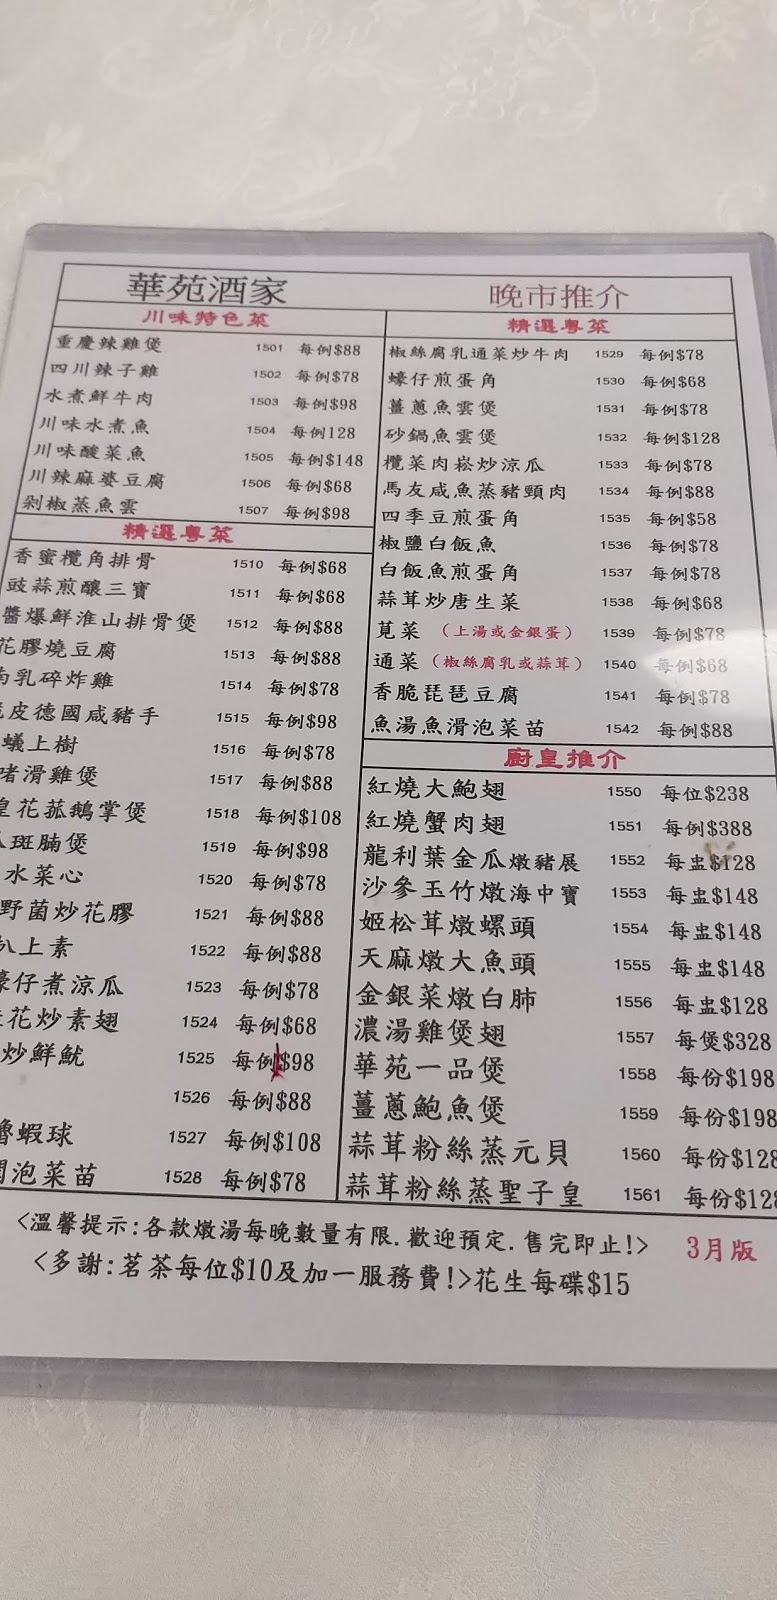 華苑酒家
晚市推介
川味特色菜
重慶辣雞煲 1501 每例$88
四川辣子雞 1502 每例$78
水煮鮮牛肉 1503 每例$98
川味水煮魚 1504 每例128
川味酸菜魚 1505 每例$148
川辣麻婆豆腐 1506 每例$68
剁椒蒸魚雲 1507 每例$98
精選粵菜
香蜜欖角排骨 1510 每例$68
豉蒜煎釀三寶 1511 每例$68
醬爆鮮淮山排骨煲 1512 每例$88
花膠燒豆腐 1513 每例$88
南乳碎炸雞 1514 每例$78
皮德國咸豬手 1515 每例$98
蟻上樹 1516 每例$78
啫滑雞煲 1517 每例$88
花菰鵝掌煲 1518 每例$108
斑腩煲 1519 每例$98
水菜心 1520 每例$78
野菌炒花膠 1521 每例$88
扒上素 1522 每例$88
蠔仔煮涼瓜 1523 每例$78
花炒素翅 1524 每例$68
炒鮮魷 1525 每例$98
1526 每例$88
蝦球 1527 每例$108
泡菜苗 1528 每例$78
精選粵菜
椒絲腐乳通菜炒牛肉 1529 每例$78
蠔仔煎蛋角 1530 每例$68
薑蔥魚雲煲 1531 每例$78
砂鍋魚雲煲 1532 每例$128
欖菜肉崧炒涼瓜 1533 每例$78
馬友咸魚蒸豬頸肉 1534 每例$88
四季豆煎蛋角 1535 每例$58
椒鹽白飯魚 1536 每例$78
白飯魚煎蛋角 1537 每例$78
蒜茸炒唐生菜 1538 每例$68
莧菜（上湯或金銀蛋） 1539 每例$78
通菜（椒絲腐乳或蒜茸） 1540 每例$68
香脆琵琶豆腐 1541 每例$78
魚湯魚滑泡菜苗 1542 每例$88
廚皇推介
紅燒大鮑翅 1550 每位$238
紅燒蟹肉翅 1551 每例$388
龍利葉金瓜燉豬展 1552 每盅$128
沙參玉竹燉海中寶 1553 每盅$148
姬松茸燉螺頭 1554 每盅$148
天麻燉大魚頭 1555 每盅$148
金銀菜燉白肺 1556 每盅$128
濃湯雞煲翅 1557 每煲$328
華苑一品煲 1558 每份$198
薑蔥鮑魚煲 1559 每份$198
蒜茸粉絲蒸元貝 1560 每份$128
蒜茸粉絲蒸聖子皇 1561 每份$128
<溫馨提示:各款燉湯每晚數量有限.歡迎預定.售完即止!>
3月版
<多謝:茗茶每位$10及加一服務費!>花生每碟$15